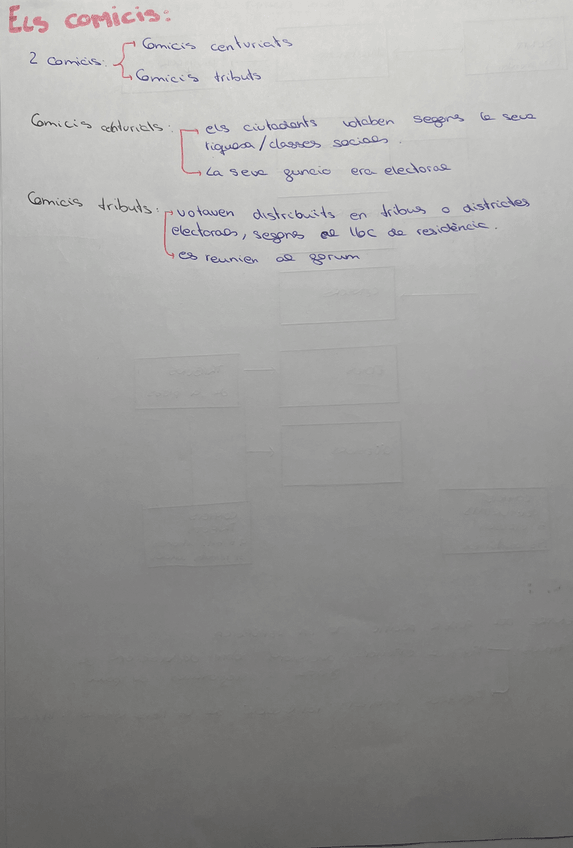 ELS COMICIS:
2 comicis:
Comicis centuriats
Comicis tributs
Comicis centuriats:
els ciutadants votaben segons la seva
riquesa/classes socials.
La seva funcio era electoral
Comicis tributs:
votaven distribuïts en tribus o districtes
electorals, segons el lloc de residència.
es reunien al forum